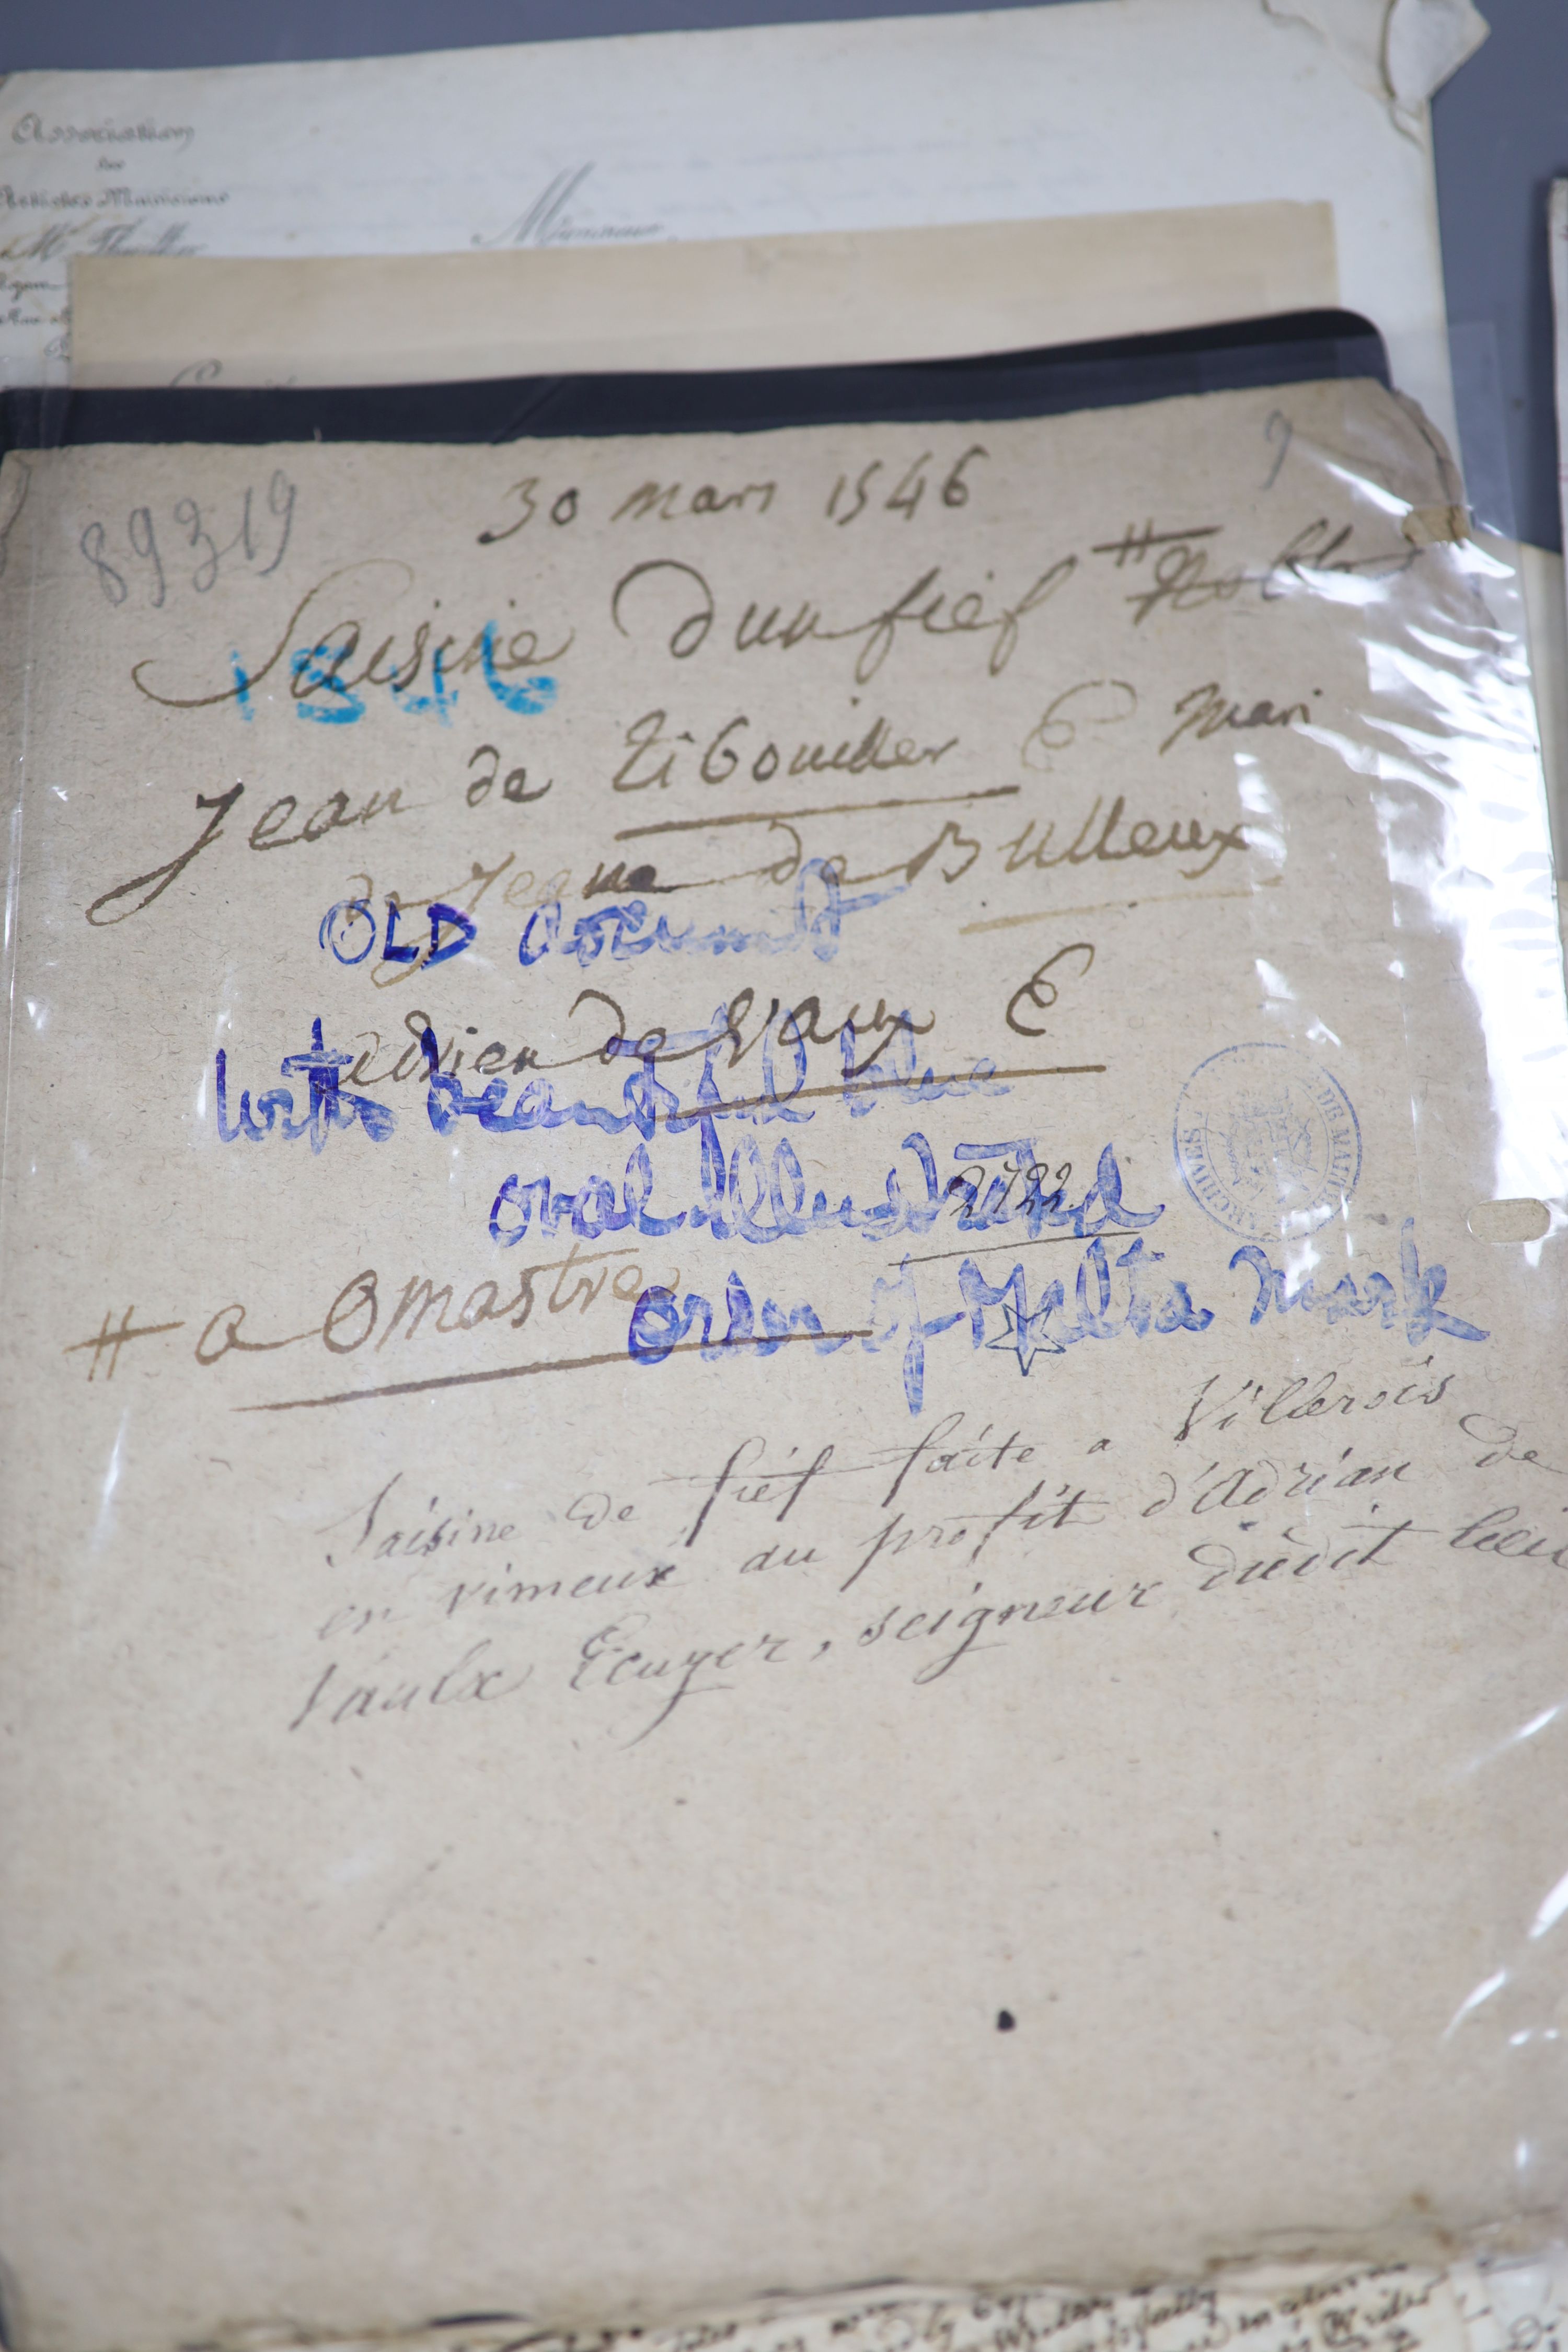 Association
des
Artistes Musiciens
Mr Thuillier
9
89319
30 mars 1546
Saisine dun fief # noble
1546
Jean de Tibouiller E mari
de Jeane de Bulleux
OLD document
adrien de Vaux E
with beautiful blue
ARCHIVES DE MALTE
oval illustrated
2722
# a Omastre
order of Malta mark
Saisine de fief faite a Villerois
en vimeux au profit d'Adrian de
Vaulx Ecuyer, seigneur dudit lieu